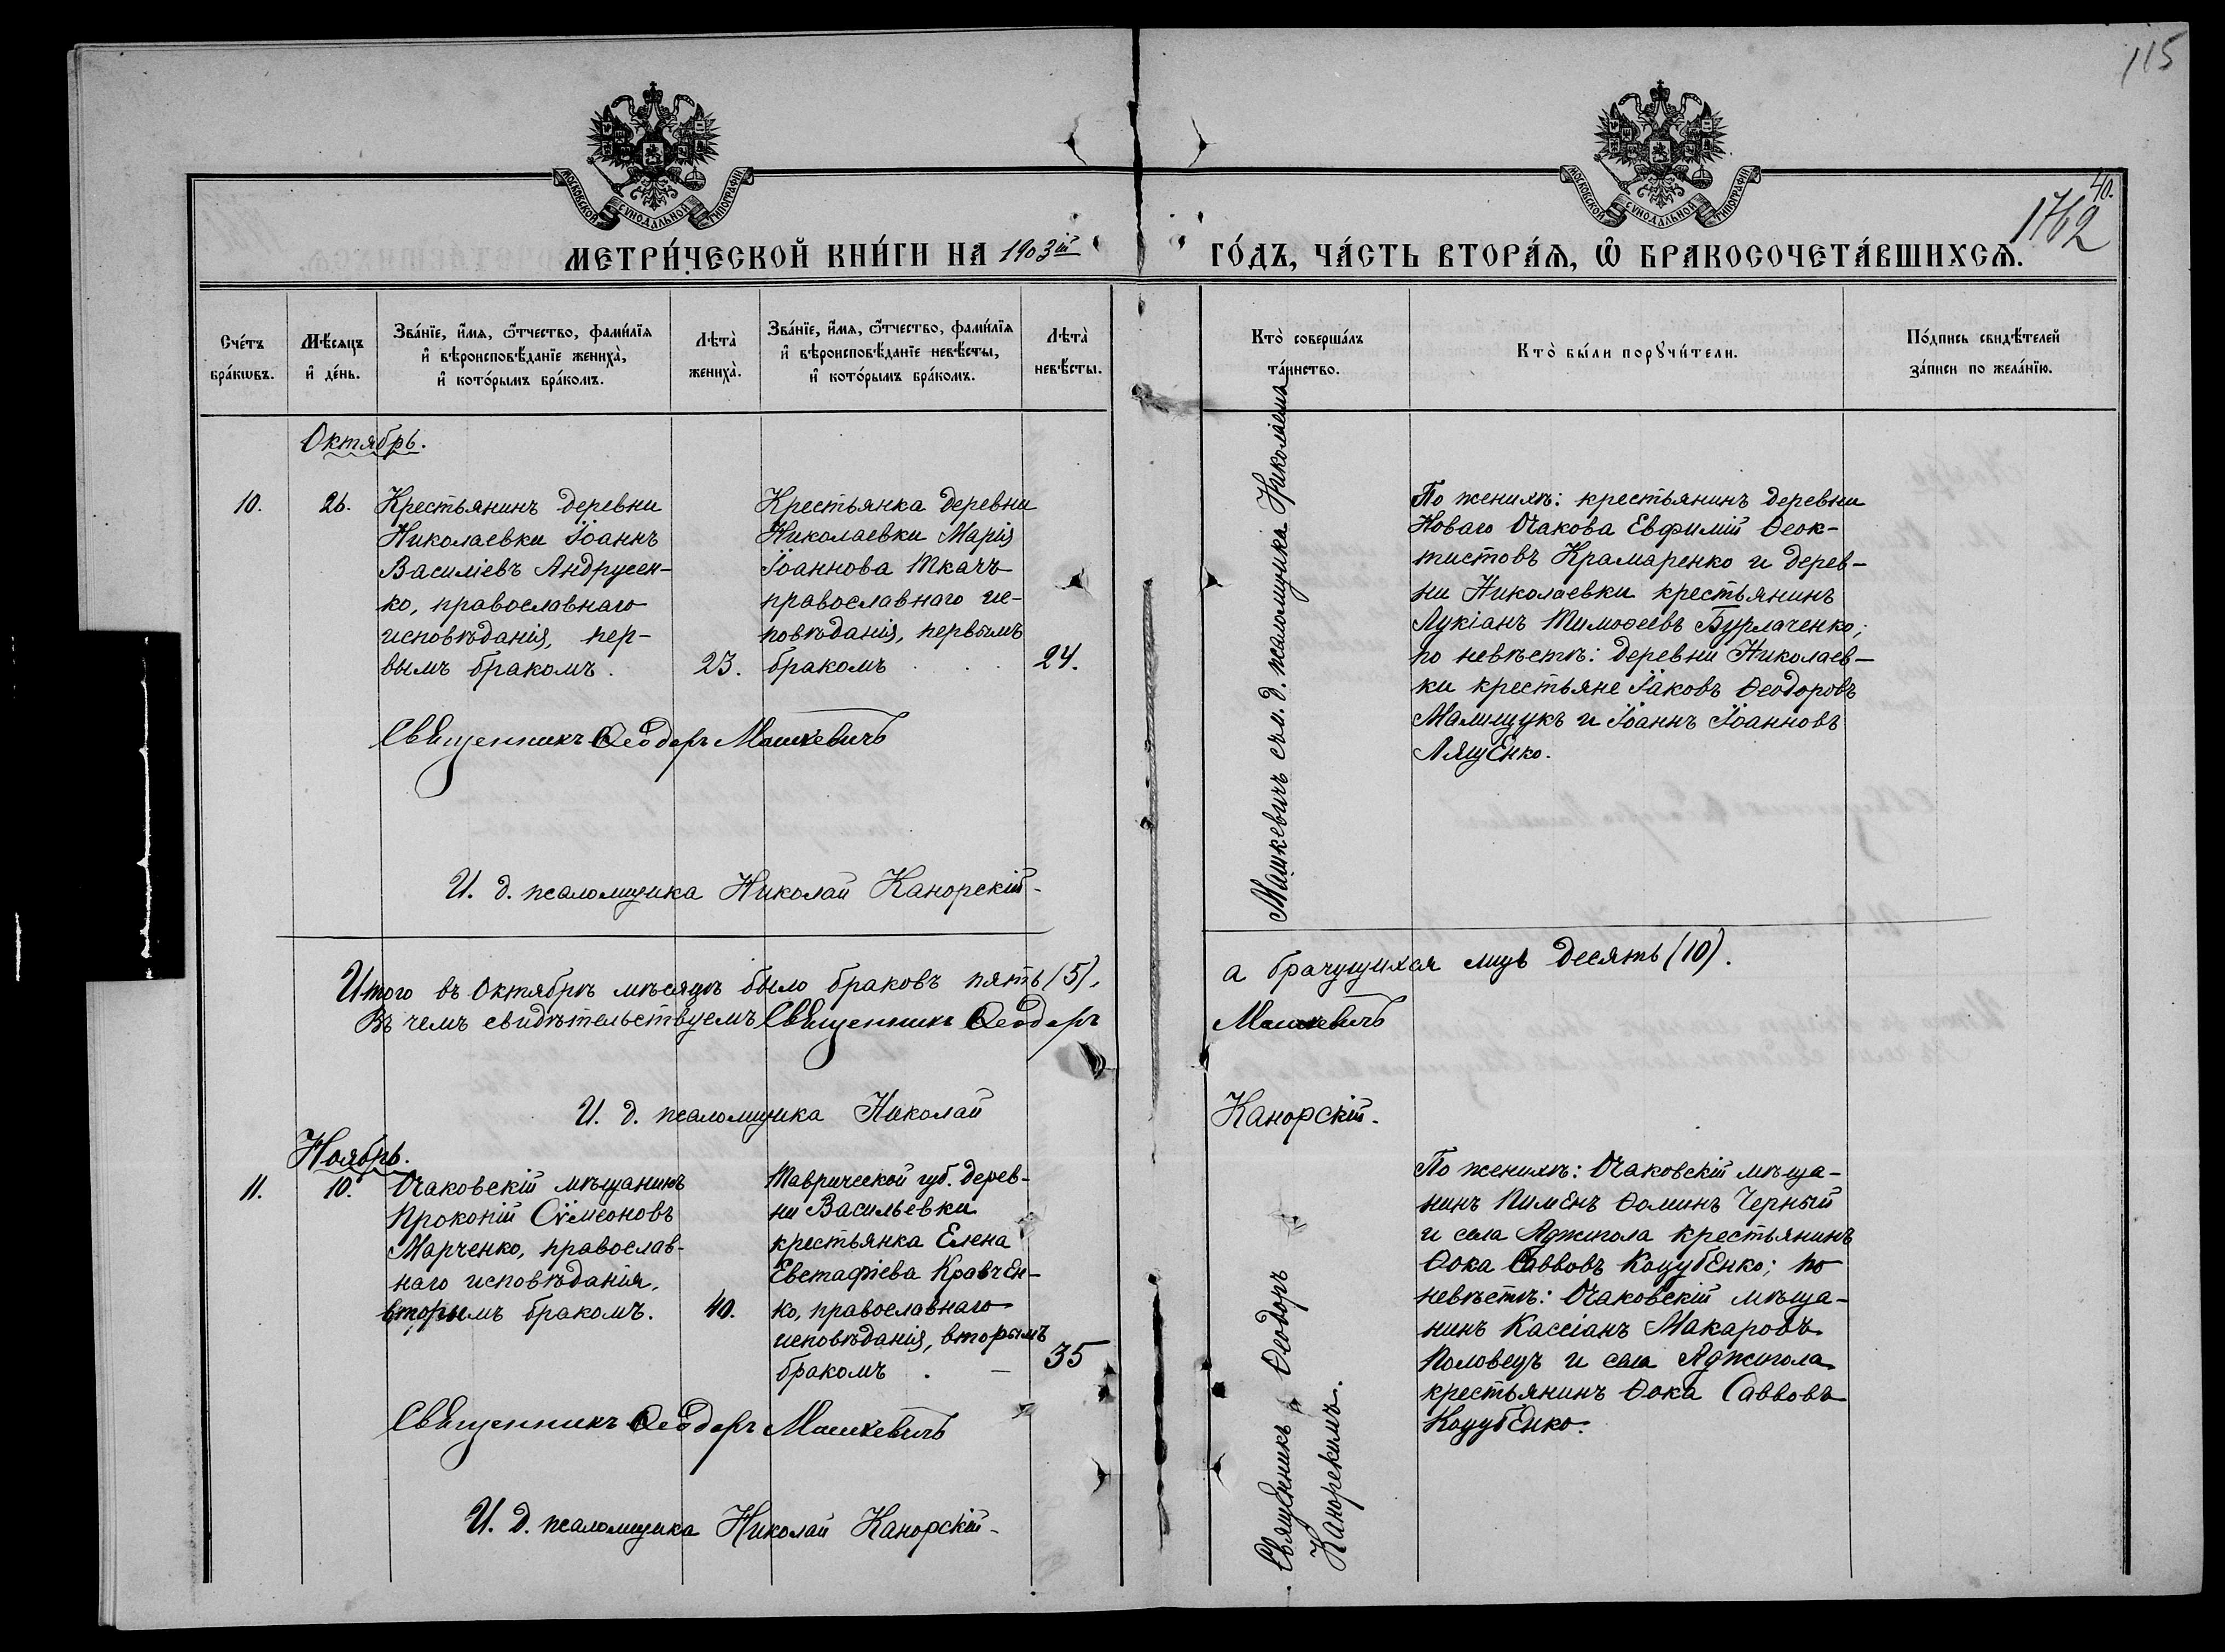 115
40.
1762
МОСКОВСКОЙ СѴНОДАЛЬНОЙ ТИПОГРАФІИ
МОСКОВСКОЙ СѴНОДАЛЬНОЙ ТИПОГРАФІИ
МЕТРИ́ЧЕСКОЙ КНИ́ГИ НА 1903ій ГО́ДЪ, ЧА́СТЬ ВТОРА́Ѧ, Ѽ БРАКОСОЧЕТА́ВШИХСѦ.
Сче́тъ
бра́кѡвъ.
Мѣ́сѧцъ
и҆ де́нь.
Зва́нїе, и҆́мѧ, ѻ҆́тчество, фами́лїѧ
и҆ вѣроисповѣ́данїе жениха̀,
и҆ кото́рымъ бра́комъ.
Лѣта̀
жениха̀.
Зва́нїе, и҆́мѧ, ѻ҆́тчество, фами́лїѧ
и҆ вѣроисповѣ́данїе невѣ́сты,
и҆ кото́рымъ бра́комъ.
Лѣта̀
невѣ́сты.
Кто̀ соверша́лъ
та́инство.
Кто̀ бы́ли порꙋчи́тели.
По́дпись свидѣ́телей
за́писи по жела́нїю.
Октябрь.
10.
26.
Крестьянинъ деревни
Николаевки Іоаннъ
Василіевъ Андрусен-
ко, православнаго
исповѣданія, пер-
вымъ бракомъ.
23.
Крестьянка деревни
Николаевки Марія
Іоаннова Ткачъ
православнаго ис-
повѣданія, первымъ
бракомъ . .
24.
Священникъ Ѳеодоръ Машкевичъ
И. д. псаломщика Николай Канорскій.
Машкевичъ съ и. д. псаломщика Николаемъ
По женихѣ: крестьянинъ деревни
Новаго Очакова Евфимій Ѳеок-
тистовъ Крамаренко и дерев-
ни Николаевки крестьянинъ
Лукіанъ Тимоѳеевъ Бурлаченко;
по невѣстѣ: деревни Николаев-
ки крестьяне Іаковъ Ѳеодоровъ
Малищукъ и Іоаннъ Іоанновъ
Лященко.
Итого въ Октябрѣ мѣсяцѣ было браковъ пять (5), а брачущихся лицъ десять (10).
Въ чемъ свидѣтельствуемъ Священникъ Ѳеодоръ Машкевичъ
И. д. псаломщика Николай Канорскій.
Ноябрь.
11.
10.
Очаковскій мѣщанинъ
Прокопій Сѵмеоновъ
Марченко, православ-
наго исповѣданія,
вторымъ бракомъ.
40.
Таврической губ. дерев-
ни Васильевки
крестьянка Елена
Евстафіева Кравчен-
ко, православнаго
исповѣданія, вторымъ
бракомъ . —
35
Священникъ Ѳеодоръ Машкевичъ
И. д. псаломщика Николай Канорскій.
Священникъ Ѳеодоръ
Канорскимъ.
По женихѣ: Очаковскій мѣща-
нинъ Пименъ Ѳоминъ Черный
и села Аджигола крестьянинъ
Ѳока Саввовъ Коцубенко; по
невѣстѣ: Очаковскій мѣща-
нинъ Кассіанъ Макаровъ
Половецъ и села Аджигола
крестьянинъ Ѳока Саввовъ
Коцубенко.